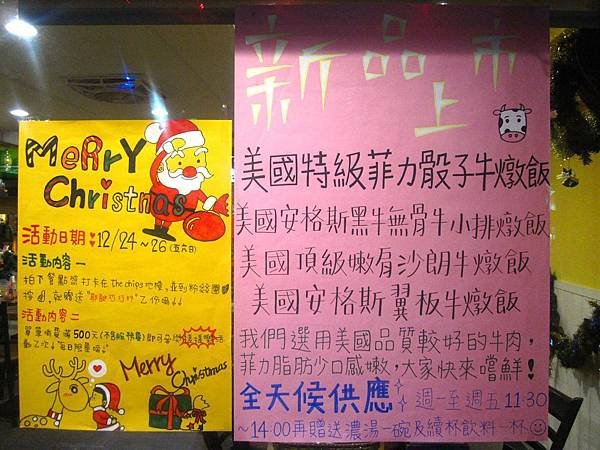 MeRRY
Christmas
活動日期 12/24~26(五六日)
活動內容一
拍下餐點並打卡在the chips地標,並到粉絲團
按讚,就贈送"耶誕巧巧杯"乙份喔↓↓
活動內容二
單筆消費滿500元(不含服務費)即可參加
"每日限量喔↓"
Merry
Christmas
新品上市
美國特級菲力骰子牛燉飯
美國安格斯黑牛無骨牛小排燉飯
美國頂級嫩肩沙朗牛燉飯
美國安格斯翼板牛燉飯
我們選用美國品質較好的牛肉,
菲力脂肪少口感嫩,大家快來嚐鮮!
全天候供應 週一至週五11:30
~14:00再贈送濃湯一碗及續杯飲料一杯